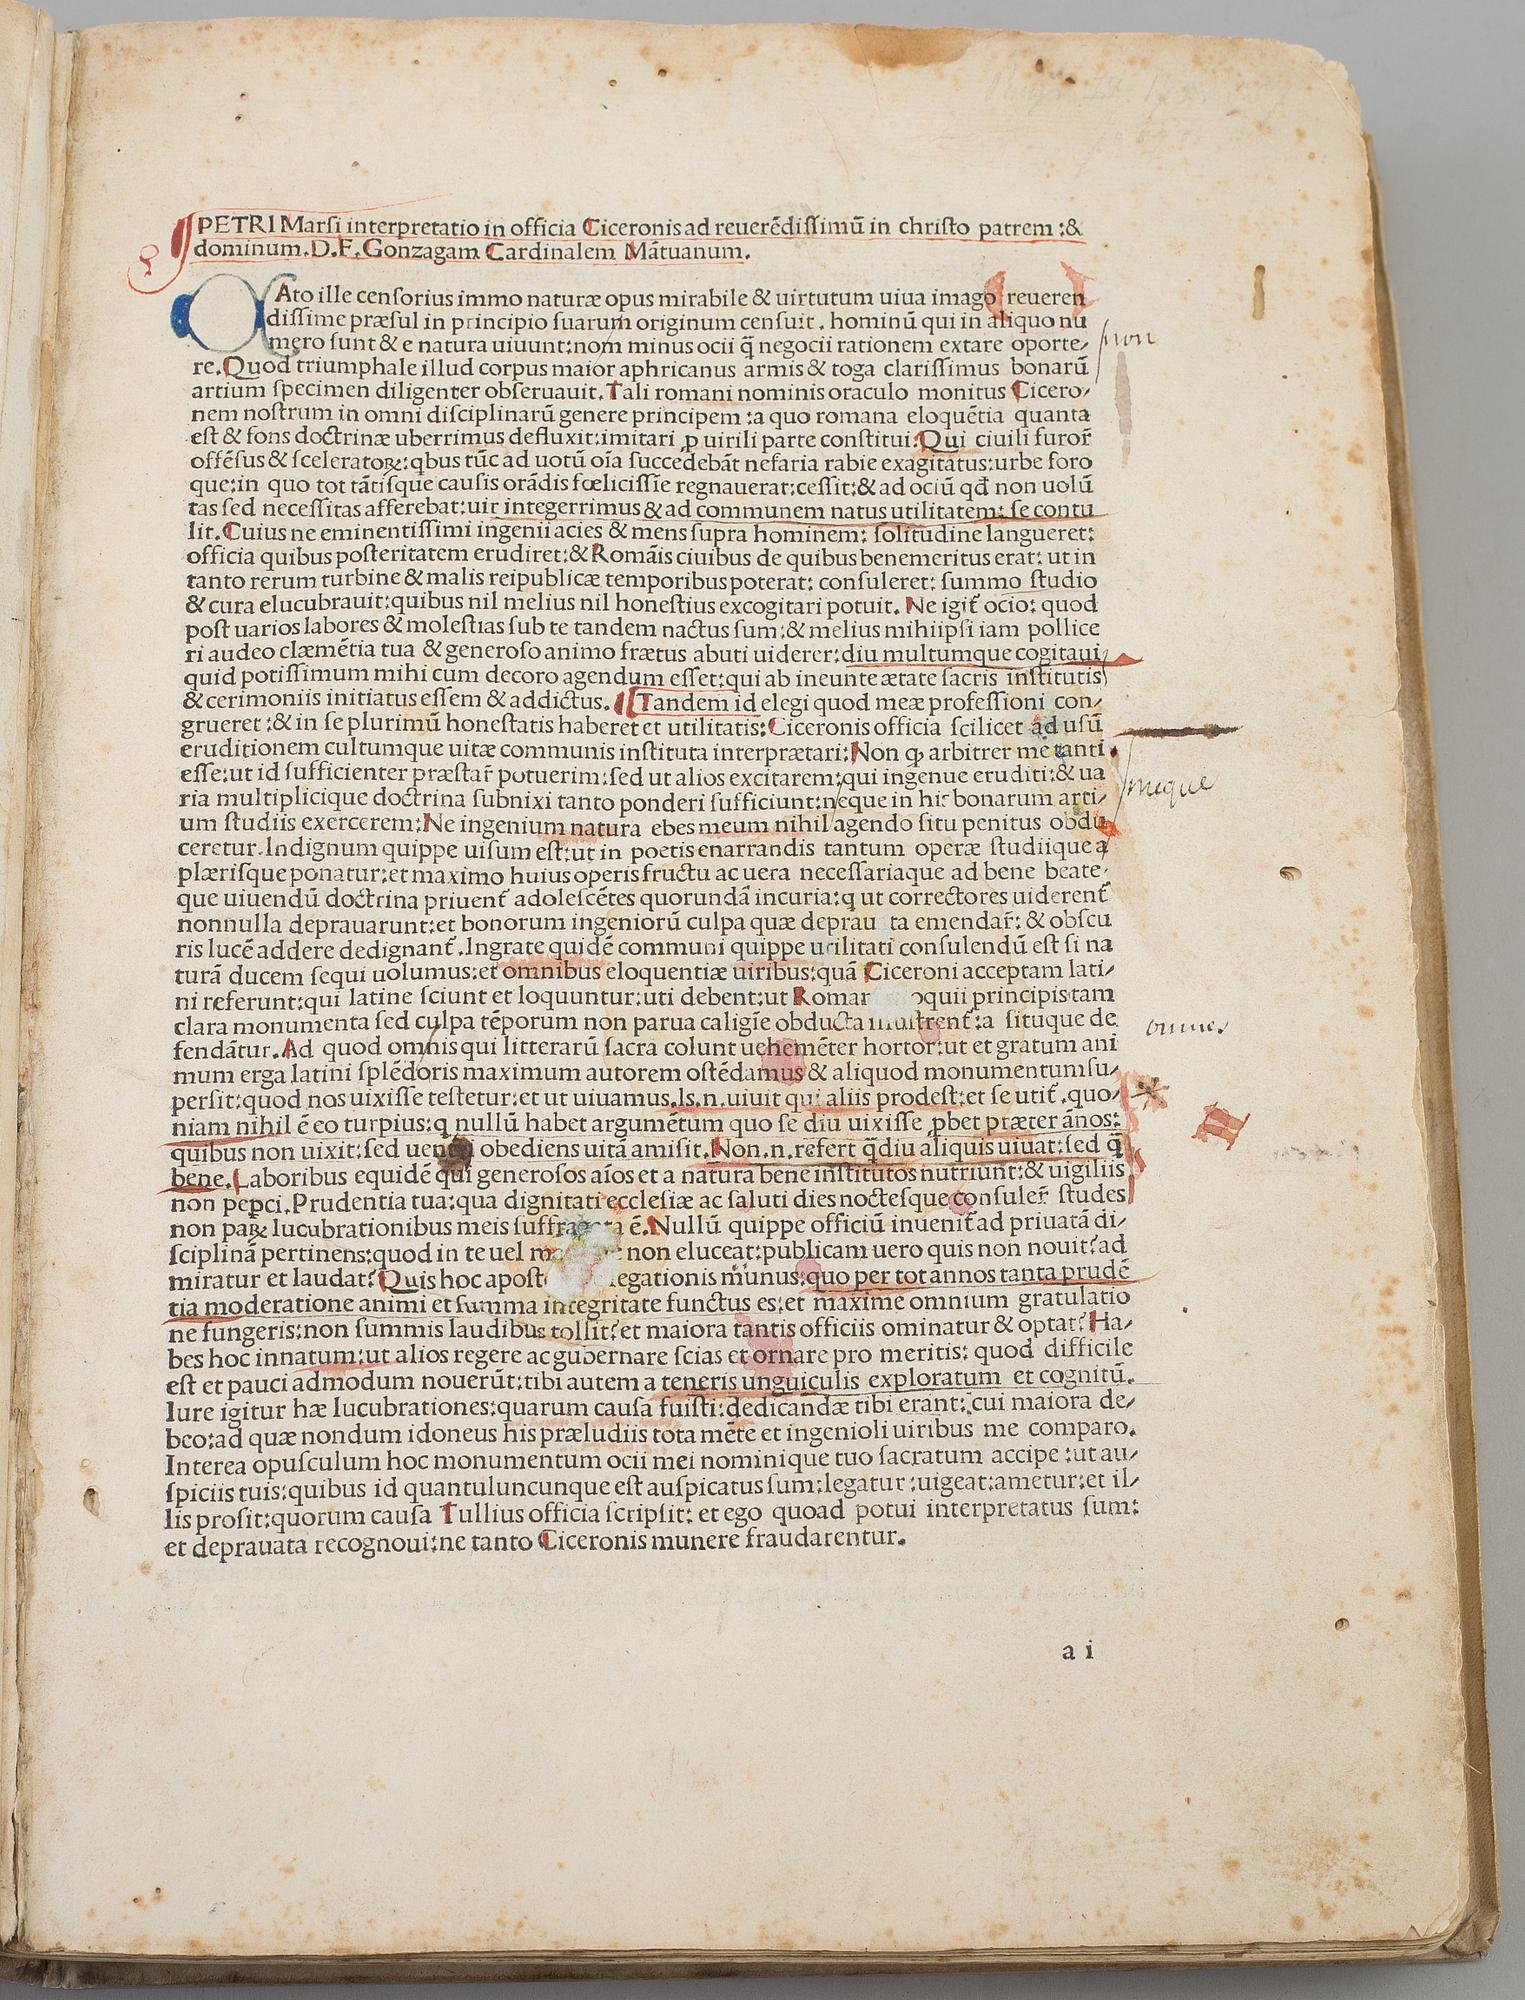 PETRI Marsi interpretatio in officia Ciceronis ad reuerẽdissimũ in christo patrem :&
dominum.D.F.Gonzagam Cardinalem Mãtuanum.
CAto ille censorius immo naturæ opus mirabile & uirtutum uiua imago reueren
dissime præsul in principio suarum originum censuit . hominũ qui in aliquo nu
mero sunt & e natura uiuunt:nom minus ocii q̃ negocii rationem extare oporte/
non
re.Quod triumphale illud corpus maior aphricanus armis & toga clarissimus bonarũ
artium specimen diligenter obseruauit.Tali romani nominis oraculo monitus Cicero/
nem nostrum in omni disciplinarũ genere principem :a quo romana eloquẽtia quanta
est & fons doctrinæ uberrimus defluxit:imitari ꝓ uirili parte constitui:Qui ciuili furoř
offẽsus & sceleratoꝝ:qbus tũc ad uotũ oĩa succedebãt nefaria rabie exagitatus:urbe foro
que:in quo tot tãtisque causis orãdis fœlicissĩe regnauerat:cessit:& ad ociũ qđ non uolũ
tas sed necessitas afferebat:uir integerrimus & ad communem natus utilitatem: se contu
lit.Cuius ne eminentissimi ingenii acies & mens supra hominem: solitudine langueret:
officia quibus posteritatem erudiret:& Romãis ciuibus de quibus benemeritus erat: ut in
tanto rerum turbine & malis reipublicæ temporibus poterat: consuleret: summo studio
& cura elucubrauit:quibus nil melius nil honestius excogitari potuit. Ne igit̃ ocio: quod
post uarios labores & molestias sub te tandem nactus sum:& melius mihi ipsi iam pollice
ri audeo clæmẽtia tua & generoso animo frætus abuti uiderer:diu multumque cogitaui
quid potissimum mihi cum decoro agendum esset:qui ab ineunte ætate sacris institutis
& cerimoniis initiatus essem & addictus. Tandem id elegi quod meæ professioni con/
grueret :& in se plurimũ honestatis haberet et utilitatis: Ciceronis officia scilicet ad usũ
eruditionem cultumque uitæ communis instituta interprætari:Non ꝙ arbitrer me tanti
esse:ut id sufficienter præstař potuerim:sed ut alios excitarem:qui ingenue eruditi:& ua
ria multiplicique doctrina subnixi tanto ponderi sufficiunt:neque in his bonarum arti/
meque
um studiis exercerem:Ne ingenium natura ebes meum nihil agendo situ penitus obdu
ceretur.Indignum quippe uisum est:ut in poetis enarrandis tantum operæ studiique a
plærisque ponatur:et maximo huius operis fructu ac uera necessariaque ad bene beate
que uiuendũ doctrina priuent̃ adolescẽtes quorundã incuria:q ut correctores uiderent̃
nonnulla deprauarunt:et bonorum ingeniorũ culpa quæ deprau ta emendař: & obscu
ris lucẽ addere dedignant̃.Ingrate quidẽ communi quippe utilitati consulendũ est si na
turã ducem sequi uolumus:et omnibus eloquentiæ uiribus:quã Ciceroni acceptam lati/
ni referunt:qui latine sciunt et loquuntur:uti debent:ut Romar oquii principis tam
clara monumenta sed culpa tẽporum non parua caligĩe obducta illustrent̃:a situque de
omnes
fendãtur.Ad quod omnis qui litterarũ sacra colunt uehemẽter hortor:ut et gratum ani
mum erga latini splẽdoris maximum autorem ostẽdamus & aliquod monumentum su/
persit:quod nos uixisse testetur:et ut uiuamus.Is.n.uiuit qui aliis prodest:et se utit̃ .quo/
niam nihil ẽ eo turpius:q nullũ habet argumẽtum quo se diu uixisse ꝓbet præter ãnos:
quibus non uixit:sed uentri obediens uitã amisit.Non.n.refert q̃diu aliquis uiuat:sed q̃
bene.Laboribus equidẽ qui generosos aĩos et a natura bene institutos nutriunt:& uigiliis
non peꝑci.Prudentia tua:qua dignitati ecclesiæ ac saluti dies noctesque consuleř studes
non paꝝ lucubrationibus meis suffragata ẽ.Nullũ quippe officiũ inuenit̃ ad priuatã di/
sciplinã pertinens:quod in te uel non eluceat:publicam uero quis non nouit?ad
miratur et laudat?Quis hoc apost egationis munus:quo per tot annos tanta prudẽ
tia moderatione animi et summa integritate functus es:et maxime omnium gratulatio
ne fungeris:non summis laudibus tollit?et maiora tantis officiis ominatur & optat?Ha/
bes hoc innatum:ut alios regere ac gubernare scias et ornare pro meritis: quod difficile
est et pauci admodum nouerũt:tibi autem a teneris unguiculis exploratum et cognitũ.
Iure igitur hæ lucubrationes:quarum causa fuisti:dedicandæ tibi erant:cui maiora de/
beo:ad quæ nondum idoneus his præludiis tota mẽte et ingenioli uiribus me comparo.
Interea opusculum hoc monumentum ocii mei nominique tuo sacratum accipe :ut au/
spiciis tuis:quibus id quantuluncunque est auspicatus sum:legatur:uigeat:ametur:et il/
lis prosit:quorum causa Tullius officia scripsit: et ego quoad potui interpretatus sum:
et deprauata recognoui:ne tanto Ciceronis munere fraudarentur.
a i